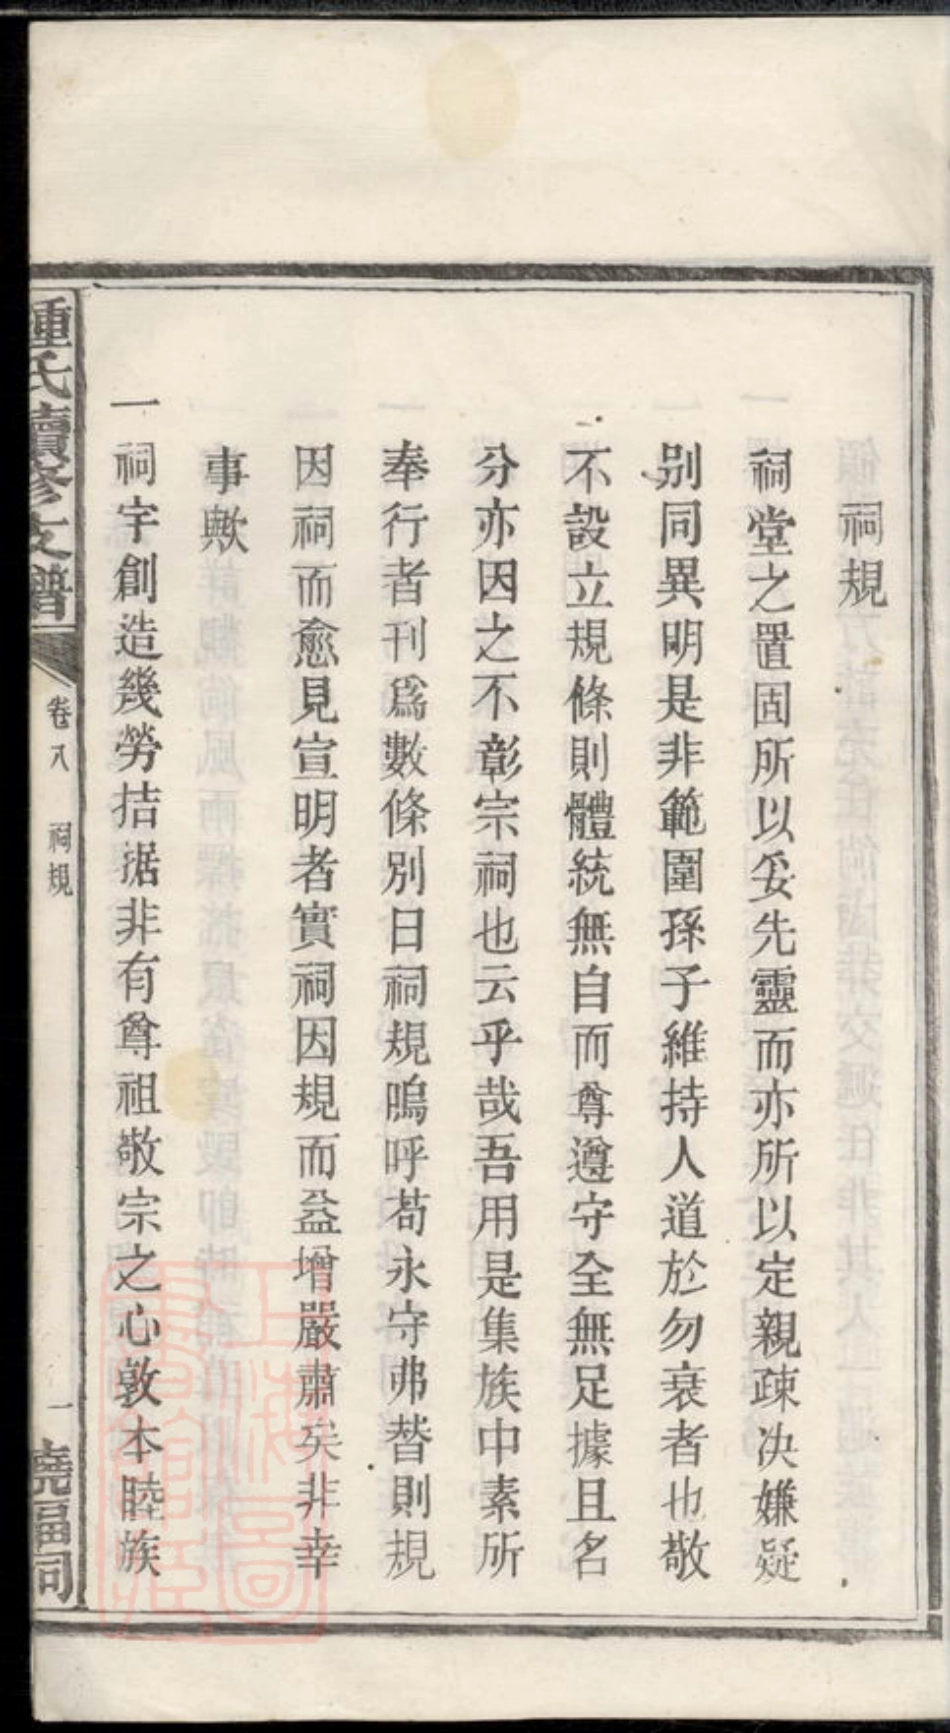 祠規
祠堂之置固所以妥先靈而亦所以定親疎决嫌疑
别同異明是非範圍孫子維持人道於勿衰者也敬
不設立規條則體統無自而尊遵守全無足據且名
分亦因之不彰宗祠也云乎哉吾用是集族中素所
奉行者刊爲數條別曰祠規嗚呼苟永守弗替則規
因祠而愈見宣明者實祠因規而益增嚴肅矣非幸
事歟
一祠宇創造幾勞拮据非有尊祖敬宗之心敦本睦族
氏續修支譜
卷八
祠規
一
福祠
上海圖書館藏